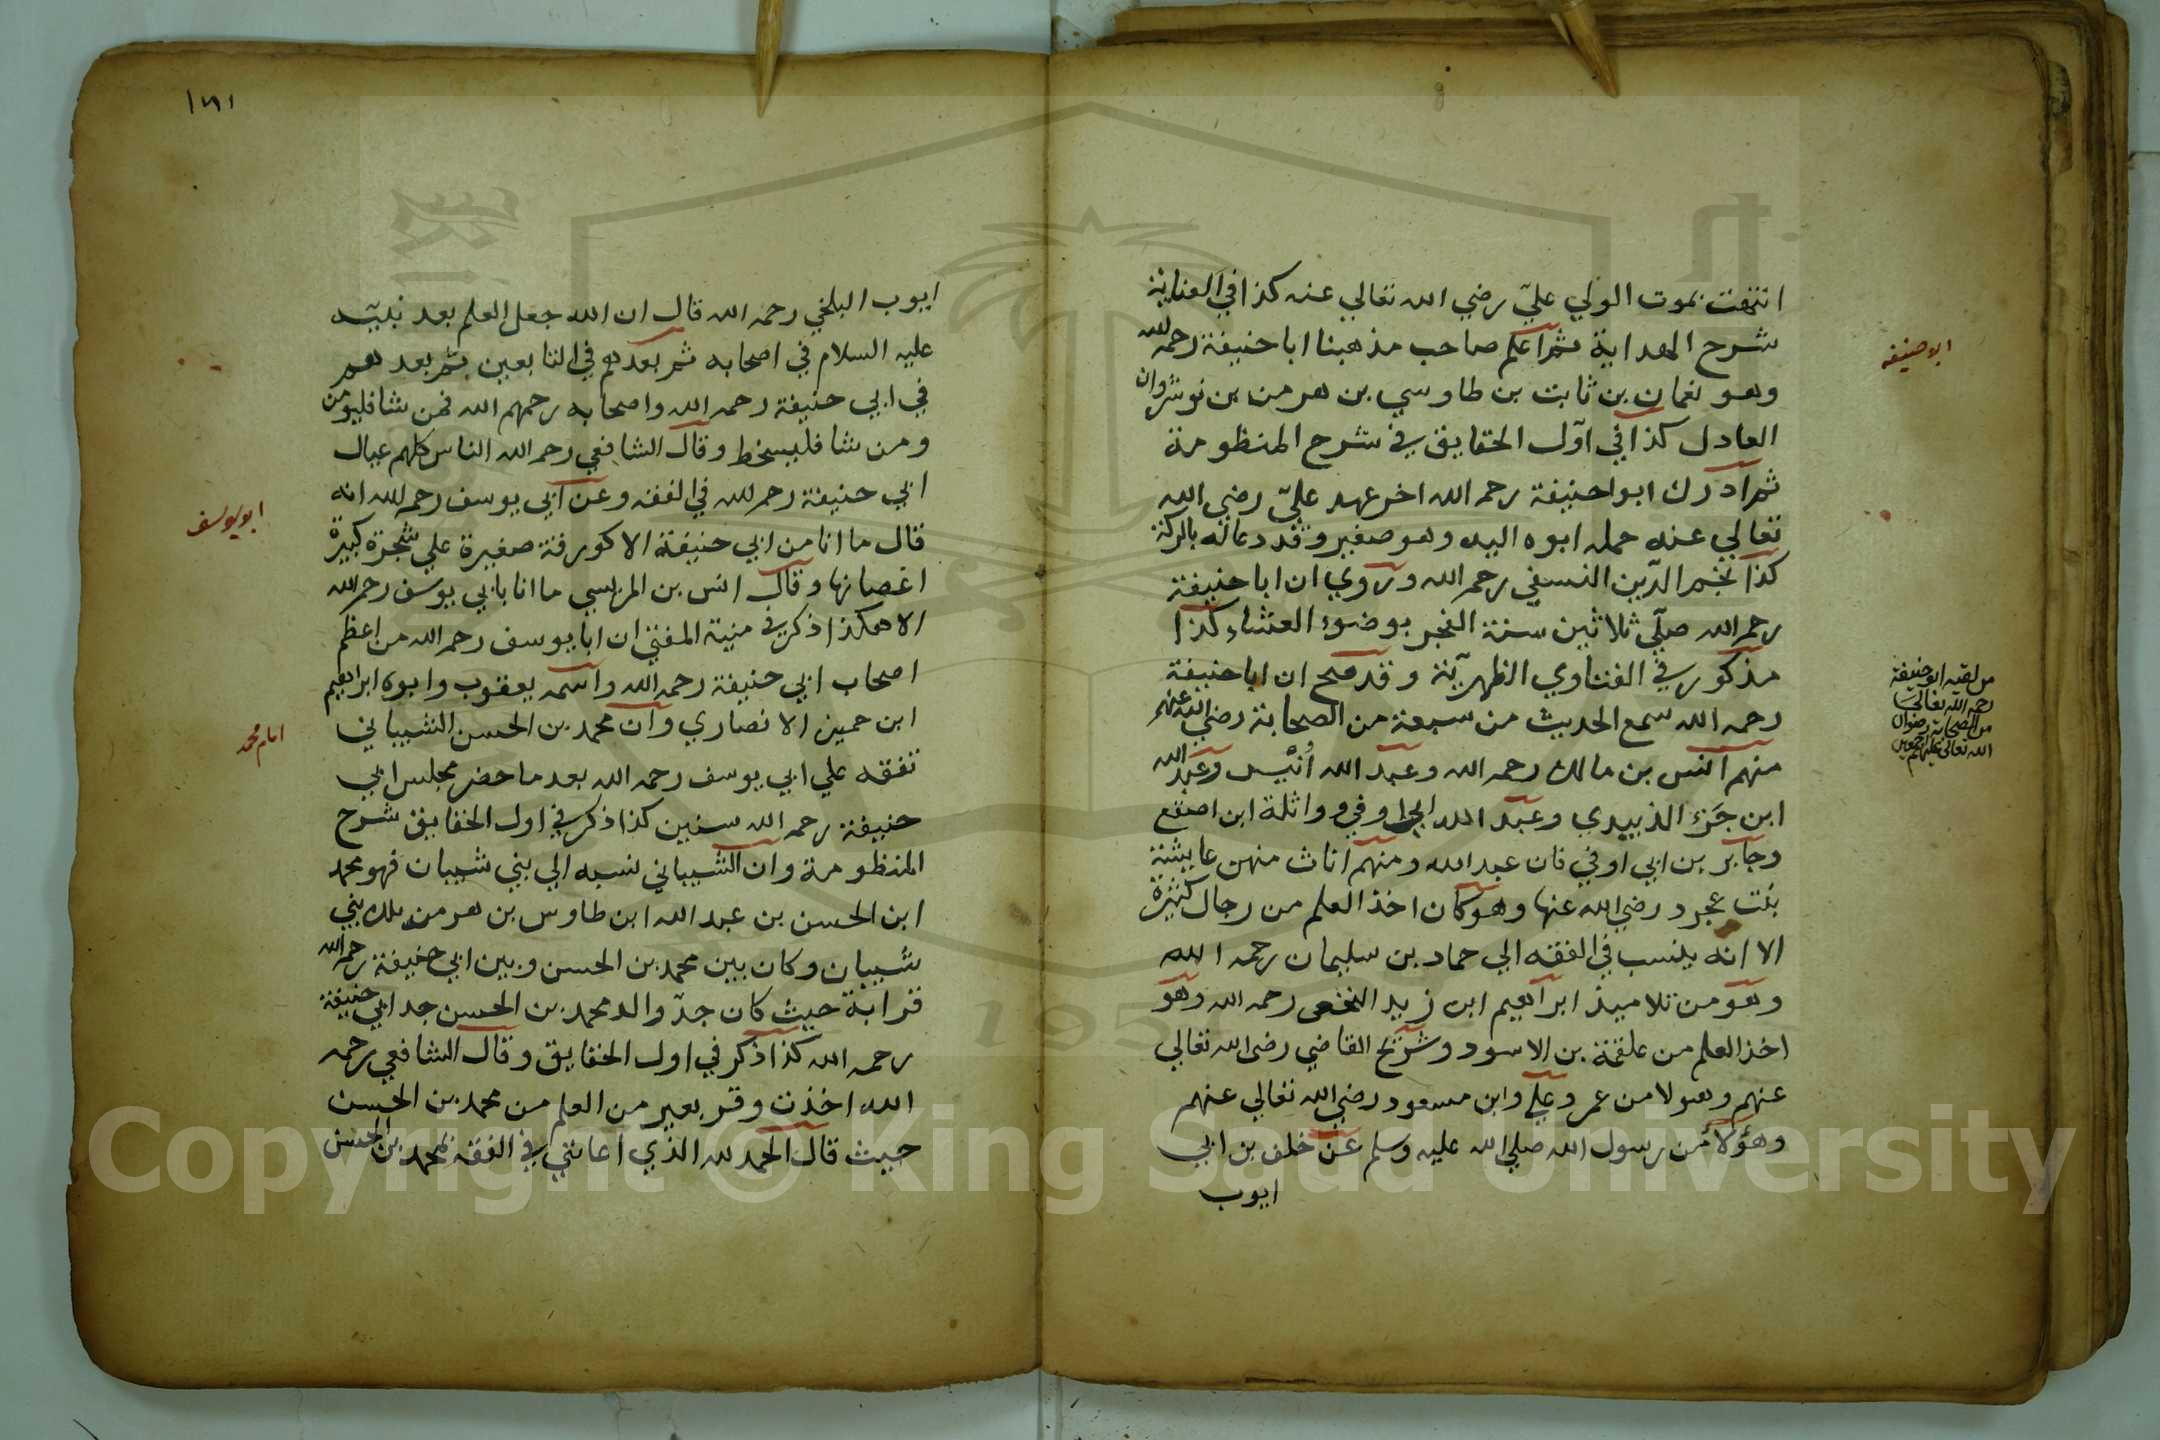 انتهت بموت الولي عليّ رضي الله تعالي عنه كذا في العناية
شرح الهداية ثم اعلم صاحب مذهبنا ابا حنيفة رحمه الله
وهو نعمان بن ثابت بن طاوسي بن هرمن بن نوشروان
العادل كذا في اول الحقايق في شرح المنظومة
ثم ادرك ابو احنيفة رحمه الله اخر عهد عليّ رضي الله
تعالي عنه حمله ابوه اليه وهو صغير وقد دعا له بالبركة
كذا نجم الدّين النسفي رحمه الله وروي ان ابا حنيفة
رحمه الله صلّي ثلاثين سنة الفجر بوضوء العشاء كذا
مذكور في الفتاوي الظهريّة وقد صح ان ابا حنيفة
رحمه الله سمع الحديث من سبعة من الصحابة رضي الله عنهم
منهم انس بن مالك رحمه الله وعبد الله أنيس وعبد الله
ابن جزء الذبيدي وعبد الله ابي اوفي وواثلة ابن اصقع
وجابر بن ابي اوفي فان عبد الله ومنهم اناث منهن عايشة
بنت عجرد رضي الله عنها وهو كان اخذ العلم من رجال كثيرة
الا انه ينسب في الفقه الي حماد بن سليمان رحمه الله
وهو من تلاميذ ابراهيم ابن زيد النخعي رحمه الله وهو
اخذ العلم من علقمة بن الاسود وشريح القاضي رضي الله تعالي
عنهم وهولا من عمر وعلي وابن مسعود رضي الله تعالي عنهم
وهؤلاء من رسول الله صلي الله عليه وسلم عن خلف بن ابي
ايوب
ابو حنيفه
من لقيه ابو حنيفة
رحمه الله تعالي
من الصحابة رضوان
الله تعالى عليهم اجمعين
١٧١
ايوب البلخي رحمه الله قال ان الله جعل العلم بعد نبيّه
عليه السلام في اصحابه ثم بعدهم في التابعين ثم بعدهم
في ابي حنيفة رحمه الله واصحابه رحمهم الله فمن شا فليومن
ومن شا فليسخط وقال الشافعي رحمه الله الناس كلهم عيال
ابي حنيفة رحمه الله في الفقه وعن ابي يوسف رحمه الله انه
قال ما انا من ابي حنيفة الا كورقة صغيرة علي شجرة كبيرة
اغصانها وقال انس بن المريسي ما انا بابي يوسف رحمه الله
الا هكذا ذكر في منية المفتي ان ابا يوسف رحمه الله من اعظم
اصحاب ابي حنيفة رحمه الله واسمه يعقوب وابوه ابراهيم
ابن حمين الانصاري وان محمد بن الحسن الشيباني
تفقه علي ابي يوسف رحمه الله بعد ما حضر مجلس ابي
حنيفة رحمه الله سنين كذا ذكر في اول الحقايق شرح
المنظومة وان الشيباني نسبه الي بني شيبان فهو محمد
ابن الحسن بن عبد الله ابن طاوس بن هرمن ملك بني
شيبان وكان بين محمد بن الحسن وبين ابي حنيفة رحمه الله
قرابة حيث كان جدّ والد محمد بن الحسن جد ابي حنيفة
رحمه الله كذا ذكر في اول الحقايق وقال الشافعي رحمه
الله اخذت وقر بعير من العلم من محمد بن الحسن
حيث قال الحمد لله الذي اعانني في الفقه بمحمد بن الحسن
ابو يوسف
امام محمد
Copyright © King Saud University
1957